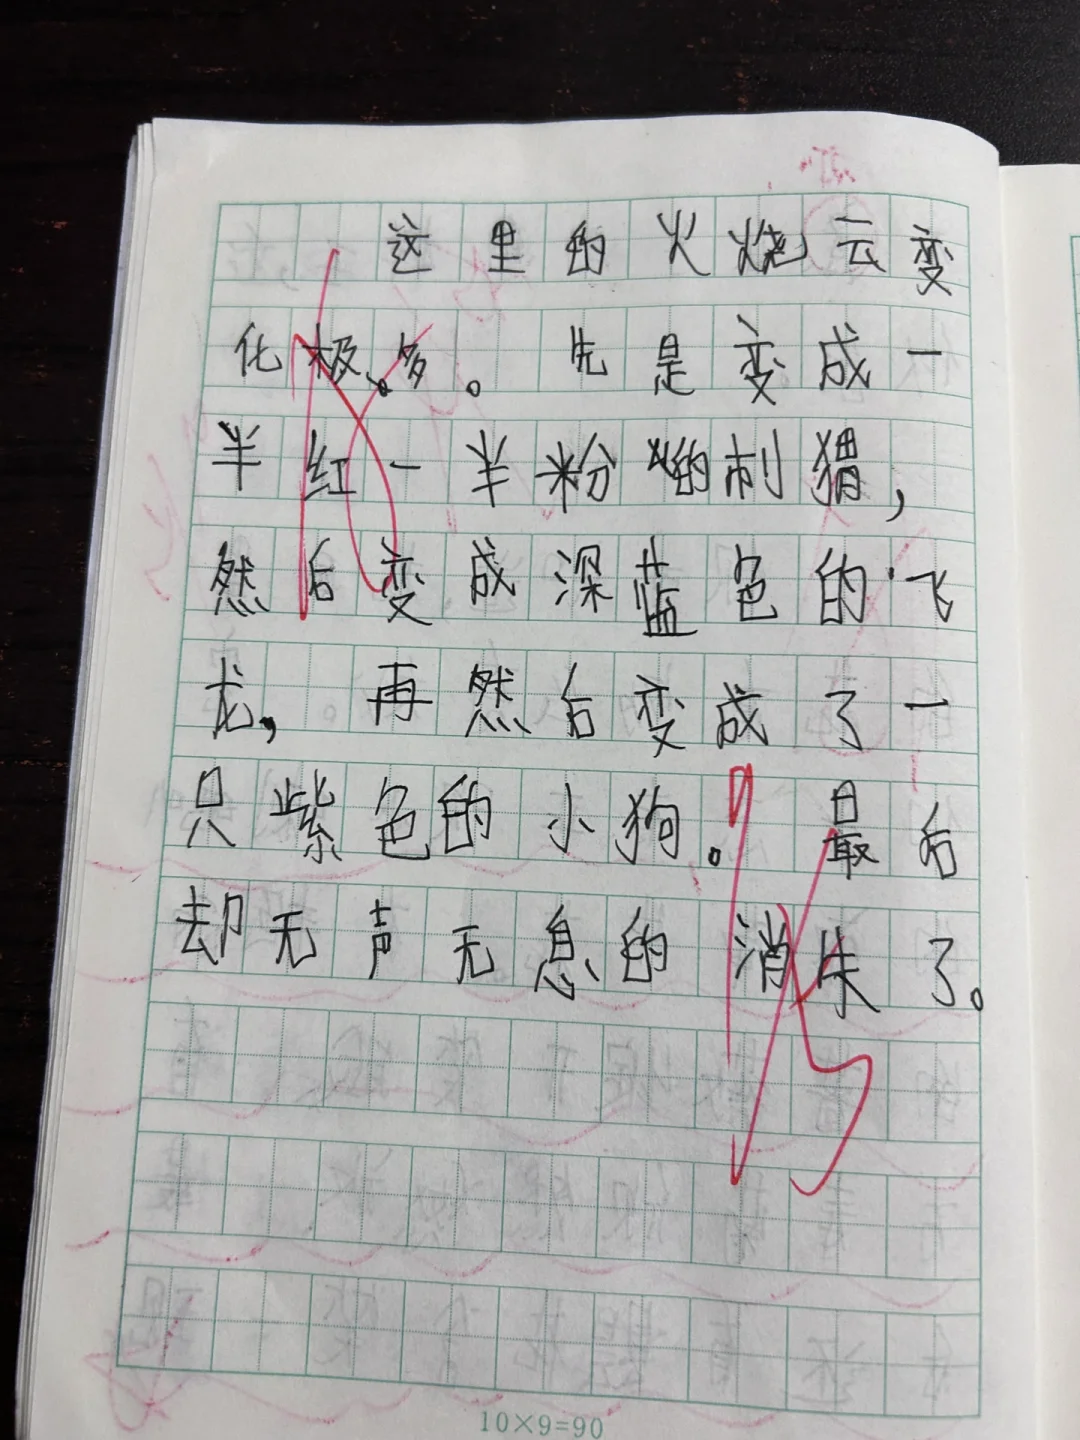 这里的火烧云变
化极多。先是变成一
半红一半粉的刺猬，
然后变成深蓝色的飞
龙，再然后变成了一
只紫色的小狗。最后
却无声无息的消失了。
10×9=90